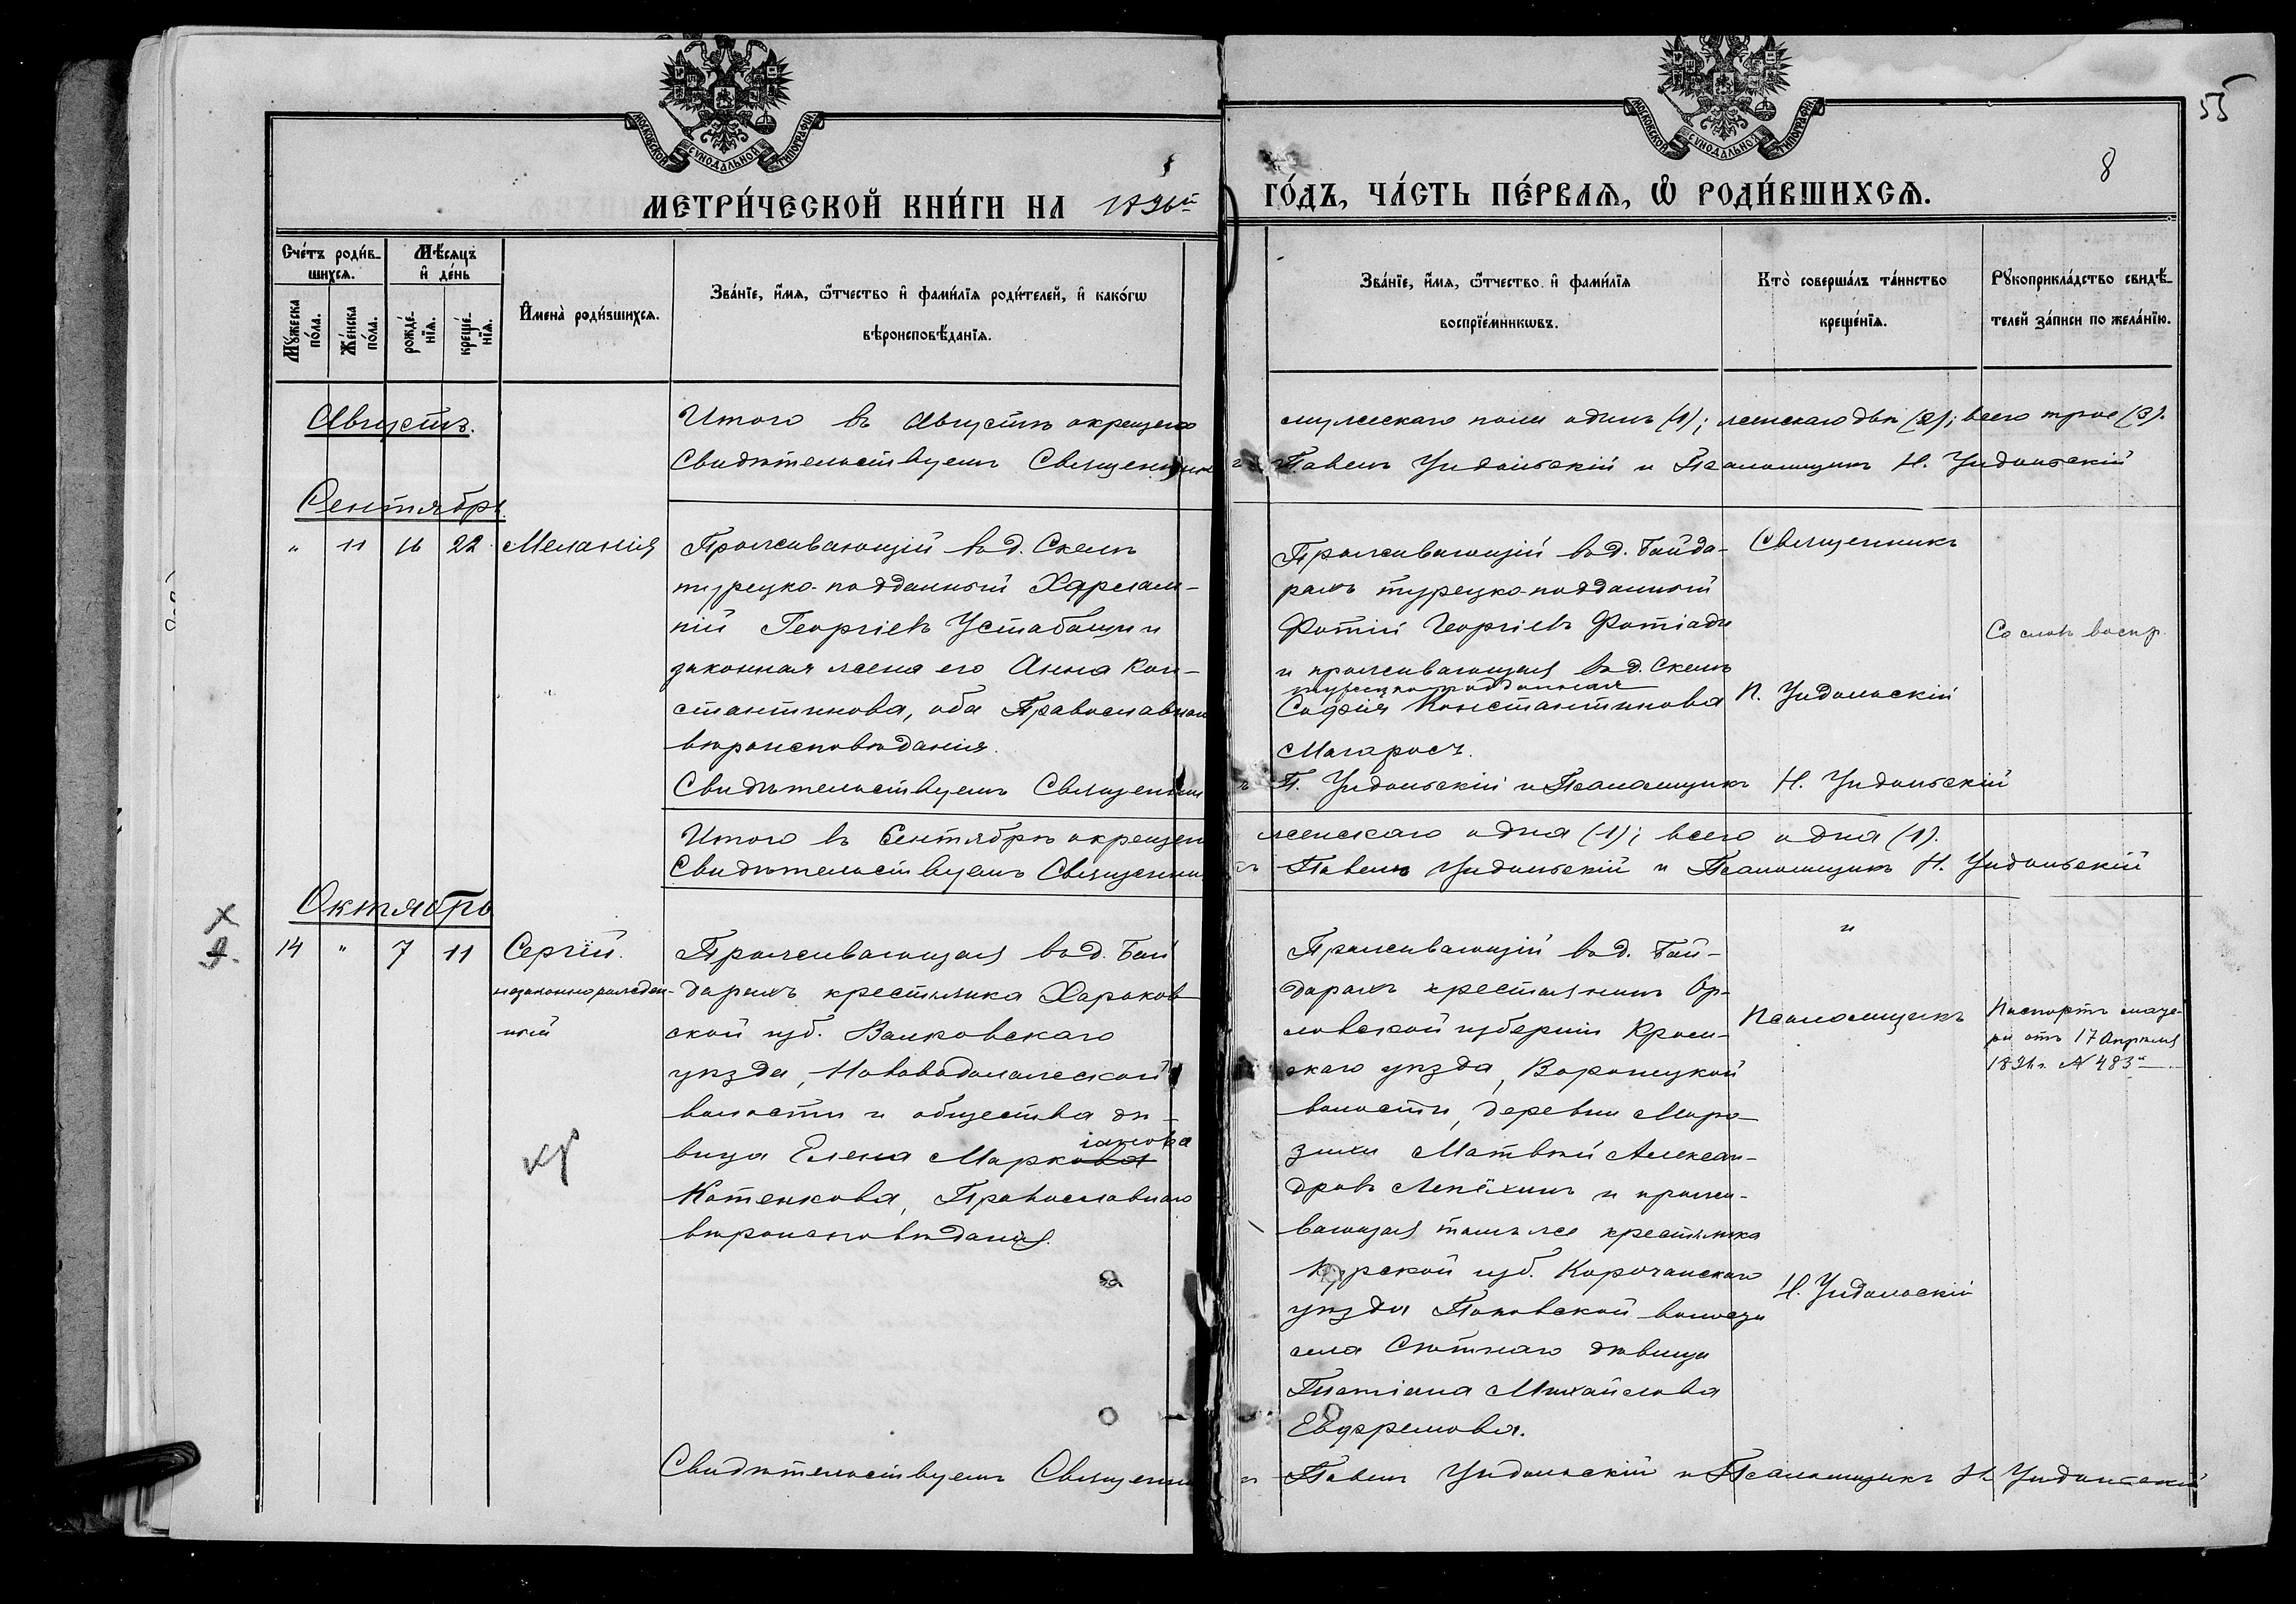 МОСКОВСКОЙ СѴНОДАЛЬНОЙ ТИПОГРАФІИ
МОСКОВСКОЙ СѴНОДАЛЬНОЙ ТИПОГРАФІИ
55
8
МЕТРИ́ЧЕСКОЙ КНИ́ГИ НА 1896й ГО́ДЪ, ЧА́СТЬ ПЕ́РВАѦ, Ѡ҆ РОДИ́ВШИХСѦ.
Сче́тъ роди́в-
шихсѧ.
Мꙋ́жеска
по́ла.
Же́нска
по́ла.
Мѣ́сѧцъ
и҆ де́нь
рожде́-
нїѧ.
креще́-
нїѧ.
И҆мена̀ роди́вшихсѧ.
Зва́нїе, и҆́мѧ, ѻ҆́тчество и҆ фами́лїѧ роди́телей, и҆ како́гѡ
вѣроисповѣ́данїѧ.
Зва́нїе, и҆́мѧ, ѻ҆́тчество и҆ фами́лїѧ
воспрїе́мникѡвъ.
Кто̀ соверша́лъ та́инство
креще́нїѧ.
Рꙋкоприкла́дство свидѣ́-
телей за́писи по жела́нїю.
Августъ.
Итого въ Августѣ окрещено мужескаго пола одинъ (1); женскаго двѣ (2); всего трое (3).
Свидѣтельствуемъ Священникъ Павелъ Ундольскій и Псаломщикъ Н. Ундольскій
Сентябрь.
" 11 16 22 Меланія
Проживающій въ д. Скеляхъ
турецко-подданный Харлам-
пій Георгіевъ Устабаши и
законная жена его Анна Кон-
стантинова, оба Православнаго
вѣроисповѣданія.
Проживающій въ д. Байда-
рахъ турецко-подданный
Фотій Георгіевъ Фотіади
и проживающая въ д. Скеляхъ
турецкоподданная
София Константинова
Священникъ
П. Ундольскій
Со словъ воспр.
Свидѣтельствуемъ Священникъ П. Ундольскій и Псаломщикъ Н. Ундольскій
Итого въ Сентябрѣ окрещено женскаго одна (1); всего одна (1).
Свидѣтельствуемъ Священникъ Павелъ Ундольскій и Псаломщикъ Н. Ундольскій
Октябрь
14 " 7 11 Сергій.
незаконнорожден-
ный
Проживающая въ д. Бай
дарахъ крестьянка Харьков-
ской губ. Валковскаго
уѣзда, Нововодолажской
волости и общества дѣ-
іанова
вица Елена Маркова
Котенкова, Православнаго
вѣроисповѣданія.
Проживающій въ д. Бай-
дарахъ крестьянинъ Ор-
ловской губерніи Кром-
скаго уѣзда, Воронецкой
волости, деревни Моро-
зихи Матвѣй Алексан-
дровъ Лепёхинъ и прожи-
вающая тамъ же крестьянка
Курской губ. Корочанскаго
уѣзда Поповской волости
села дѣвица
Татіана Михайлова
Евфремова.
"
Псаломщикъ
Н. Ундольскій
Паспортъ мате-
ри отъ 17 Апрѣля
1896 г. № 483
Свидѣтельствуемъ Священникъ Павелъ Ундольскій и Псаломщикъ Н. Ундольскій